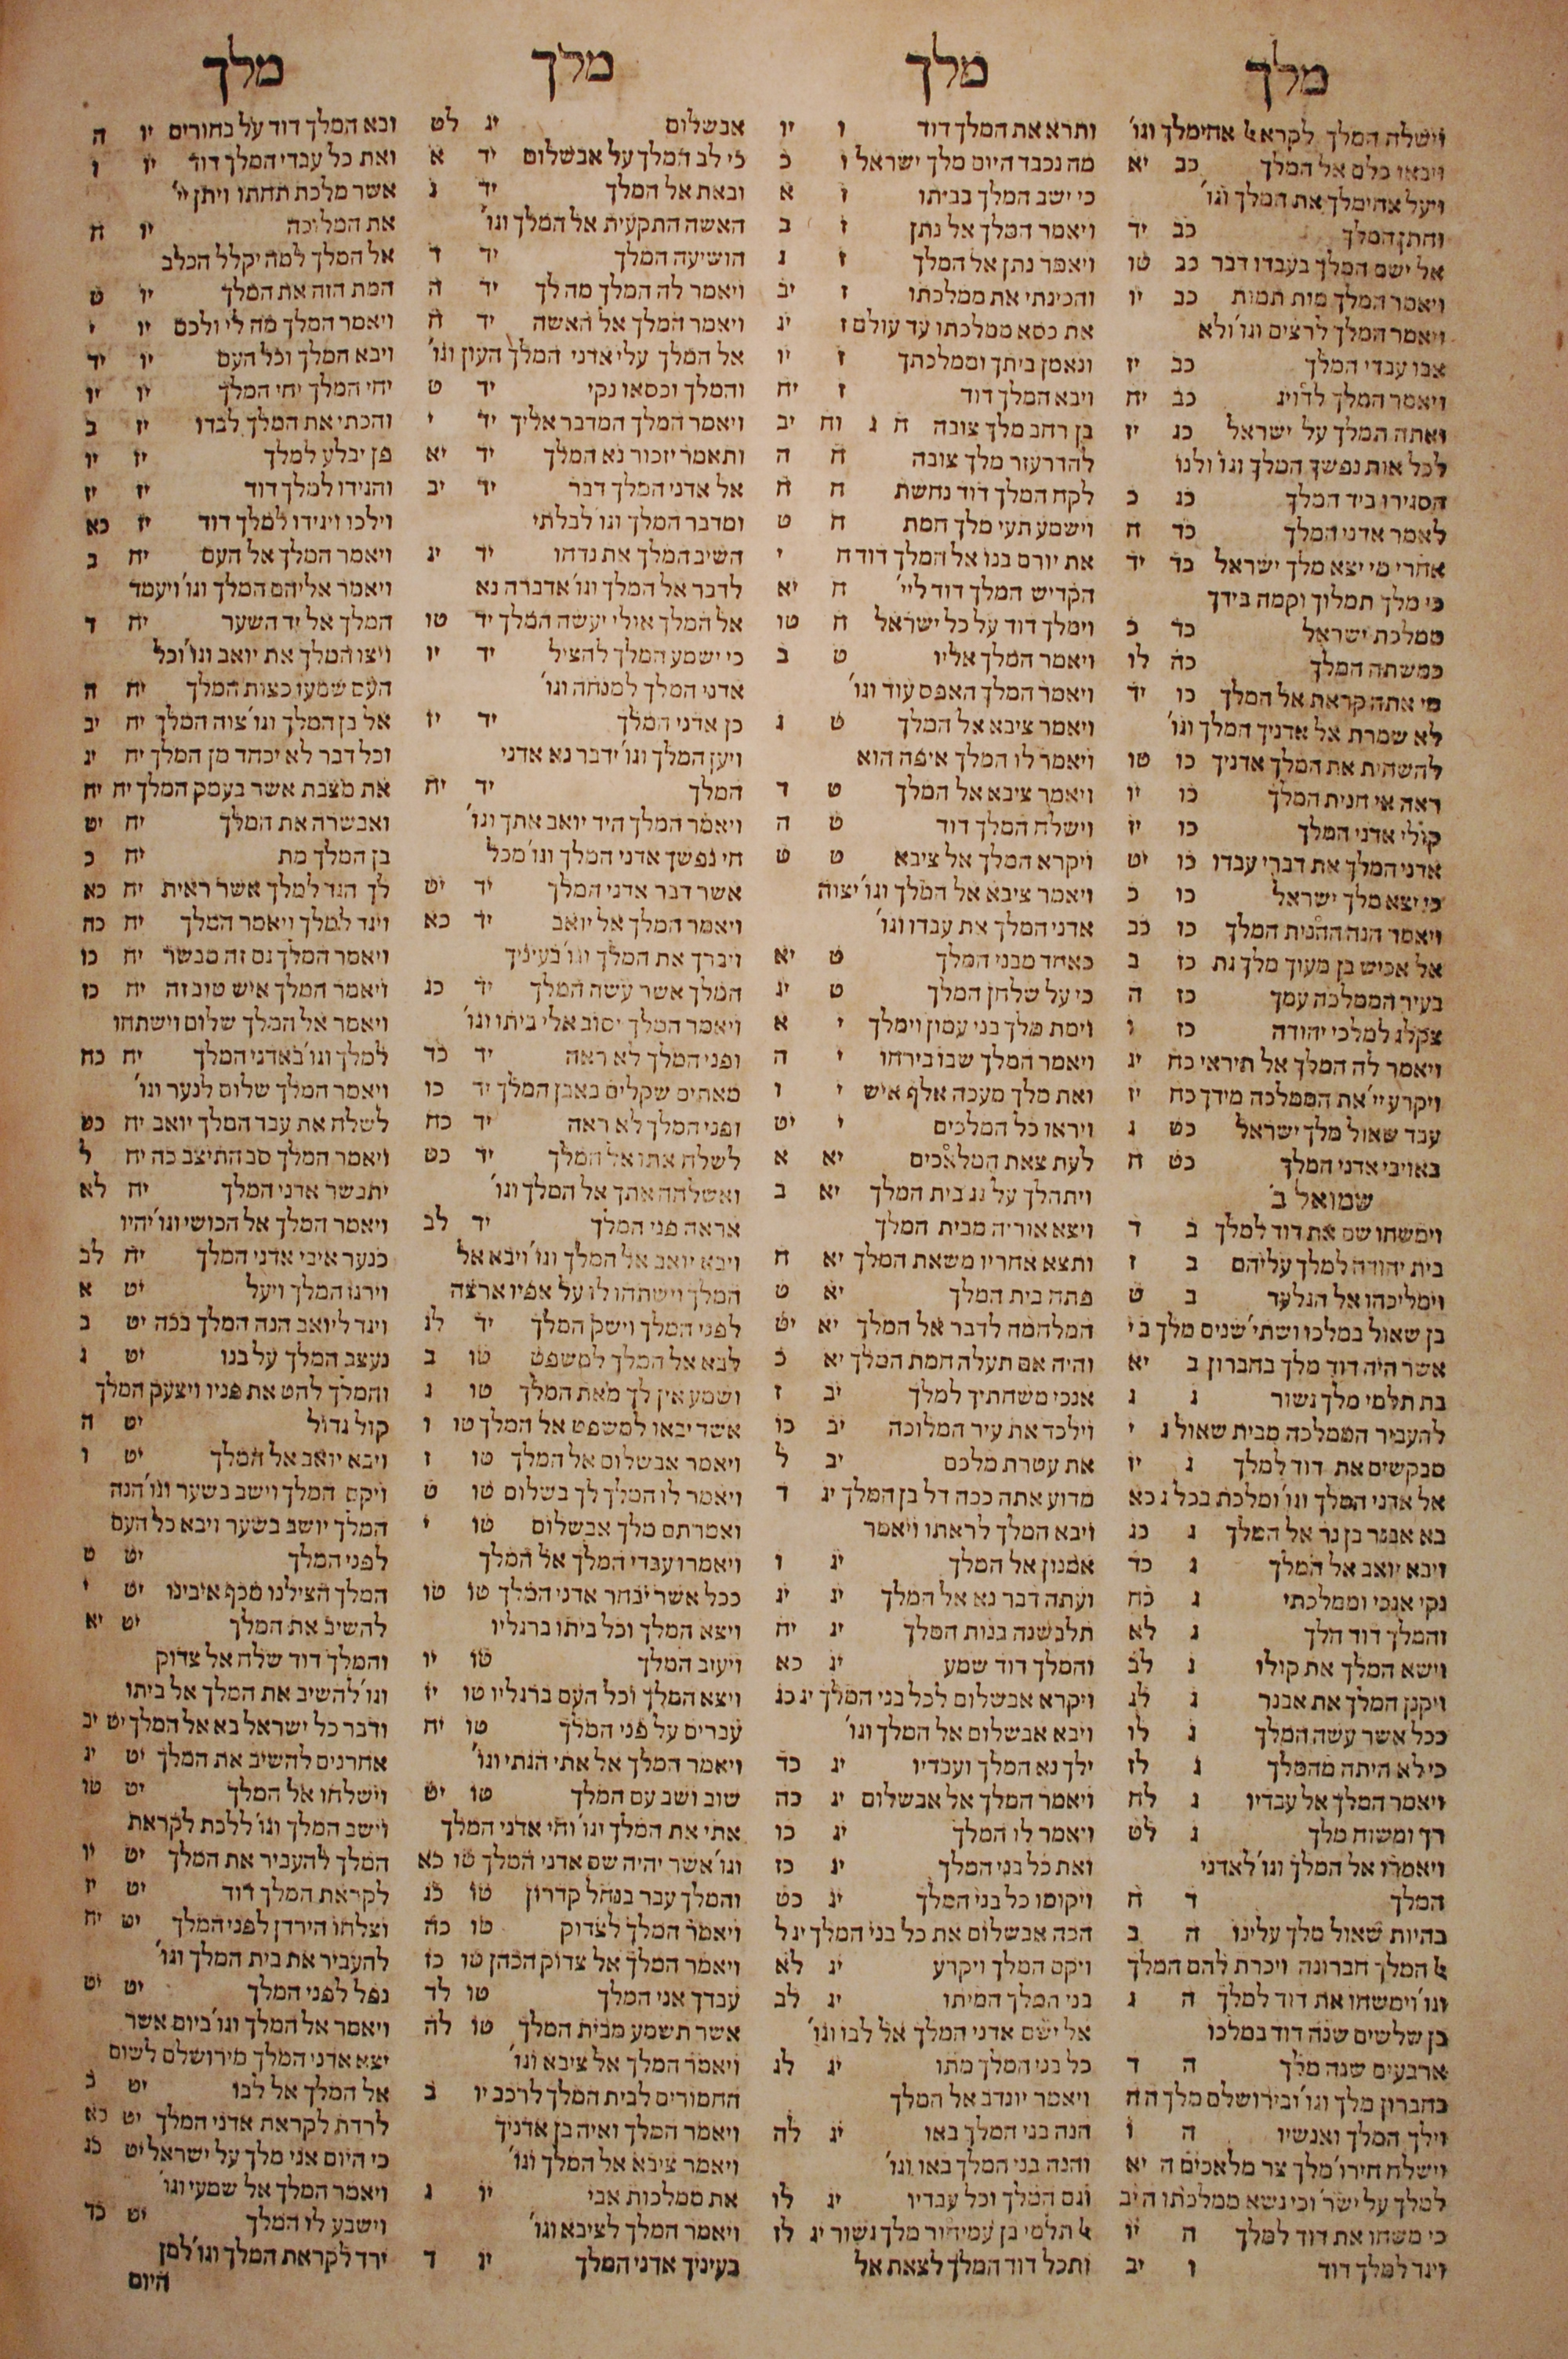 מלך
וישלח המלך לקרא אחימלך וגו'
ויבאו כלם אל המלך כב יא
ויען אחימלך את המלך וגו'
וחתן המלך כב יד
אל ישם המלך בעבדו דבר כב טו
ויאמר המלך מות תמות כב יו
ויאמר המלך לרצים וגו' ולא
אבו עבדי המלך כב יז
ויאמר המלך לדויג כב יח
ואתה המלך על ישראל כג יז
לכל אות נפשך המלך וגו' ולנו
הסגירו ביד המלך כג כ
לאמר אדני המלך כד ח
אחרי מי יצא מלך ישראל כד יד
כי מלך תמלוך וקמה בידך
ממלכת ישראל כד כ
כמשתה המלך כה לו
מי אתה קראת אל המלך כו יד
לא שמרת אל אדניך המלך וגו'
להשחית את המלך אדניך כו טו
ראה אי חנית המלך כו יו
קולי אדני המלך כו יז
אדני המלך את דברי עבדו כו יט
כי יצא מלך ישראל כו כ
ויאמר הנה החנית המלך כו כב
אל אכיש בן מעוך מלך גת כז ב
בעיר הממלכה עמך כז ה
צקלג למלכי יהודה כז ו
ויאמר לה המלך אל תיראי כח יג
ויקרע יי' את הממלכה מידך כח יז
עבד שאול מלך ישראל כט ג
באויבי אדני המלך כט ח
שמואל ב'
וימשחו שם את דוד למלך ב ד
בית יהודה למלך עליהם ב ז
וימליכהו אל הגלעד ב ט
בן שאול במלכו ושתי שנים מלך ב י
אשר היה דוד מלך בחברון ב יא
בת תלמי מלך גשור ג ג
להעביר הממלכה מבית שאול ג י
מבקשים את דוד למלך ג יז
אל אדני המלך וגו' ומלכת בכל ג כא
בא אבנר בן נר אל המלך ג כג
ויבא יואב אל המלך ג כד
נקי אנכי וממלכתי ג כח
והמלך דוד הלך ג לא
וישא המלך את קולו ג לב
ויקנן המלך את אבנר ג לג
ככל אשר עשה המלך ג לו
כי לא היתה מהמלך ג לז
ויאמר המלך אל עבדיו ג לח
רך ומשוח מלך ג לט
ויאמרו אל המלך וגו' לאדני
המלך ד ח
בהיות שאול מלך עלינו ה ב
המלך חברונה ויכרת להם המלך
וגו' וימשחו את דוד למלך ה ג
בן שלשים שנה דוד במלכו
ארבעים שנה מלך ה ד
בחברון מלך וגו' ובירושלם מלך ה ה
וילך המלך ואנשיו ה ו
וישלח חירו' מלך צר מלאכים ה יא
למלך על ישר' וכי נשא ממלכתו ה יב
כי משחו את דוד למלך ה יז
ויגד למלך דוד ו יב
מלך
ותרא את המלך דוד ו יו
מה נכבד היום מלך ישראל ו כ
כי ישב המלך בביתו ז א
ויאמר המלך אל נתן ז ב
ויאמר נתן אל המלך ז ג
והכינתי את ממלכתו ז יב
את כסא ממלכתו עד עולם ז יג
ונאמן ביתך וממלכתך ז יו
ויבא המלך דוד ז יח
בן רחב מלך צובה ח ג וח יב
להדרעזר מלך צובה ח ה
לקח המלך דוד נחשת ח ח
וישמע תעי מלך חמת ח ט
את יורם בנו אל המלך דוד ח י
הקדיש המלך דוד ליי' ח יא
וימלך דוד על כל ישראל ח טו
ויאמר המלך אליו ט ב
ויאמר המלך האפס עוד וגו'
ויאמר ציבא אל המלך ט ג
ויאמר לו המלך איפה הוא
ויאמר ציבא אל המלך ט ד
וישלח המלך דוד ט ה
ויקרא המלך אל ציבא ט ט
ויאמר ציבא אל המלך וגו' יצוה
אדני המלך את עבדו וגו'
כאחד מבני המלך ט יא
כי על שלחן המלך ט יג
וימת מלך בני עמון וימלך י א
ויאמר המלך שבו בירחו י ה
ואת מלך מעכה אלף איש י ו
ויראו כל המלכים י יט
לעת צאת המלאכים יא א
ויתהלך על גג בית המלך יא ב
ויצא אוריה מבית המלך
ותצא אחריו משאת המלך יא ח
פתח בית המלך יא ט
המלחמה לדבר אל המלך יא יט
והיה אם תעלה חמת המלך יא כ
אנכי משחתיך למלך יב ז
וילכד את עיר המלוכה יב כו
את עטרת מלכם יב ל
מדוע אתה ככה דל בן המלך יג ד
ויבא המלך לראתו ויאמר
אמנון אל המלך יג ו
ועתה דבר נא אל המלך יג יג
תלבשנה בנות המלך יג יח
והמלך דוד שמע יג כא
ויקרא אבשלום לכל בני המלך יג כג
ויבא אבשלום אל המלך וגו'
ילך נא המלך ועבדיו יג כד
ויאמר המלך אל אבשלום יג כה
ויאמר לו המלך יג כו
ואת כל בני המלך יג כז
ויקומו כל בני המלך יג כט
הכה אבשלום את כל בני המלך יג ל
ויקם המלך ויקרע יג לא
בני המלך המיתו יג לב
אל ישם אדני המלך אל לבו וגו'
כל בני המלך מתו יג לג
ויאמר יונדב אל המלך
הנה בני המלך באו יג לה
והנה בני המלך באו וגו'
וגם המלך וכל עבדיו יג לו
תלמי בן עמיהור מלך גשור יג לז
ותכל דוד המלך לצאת אל
מלך
אבשלום יג לט
כי לב המלך על אבשלום יד א
ובאת אל המלך יד ג
האשה התקעית אל המלך וגו'
הושיעה המלך יד ד
ויאמר לה המלך מה לך יד ה
ויאמר המלך אל האשה יד ח
אל המלך עלי אדני המלך העון וגו'
והמלך וכסאו נקי יד ט
ויאמר המלך המדבר אליך יד י
ותאמר יזכור נא המלך יד יא
אל אדני המלך דבר יד יב
ומדבר המלך וגו' לבלתי
השיב המלך את נדחו יד יג
לדבר אל המלך וגו' אדברה נא
אל המלך אולי יעשה המלך יד טו
כי ישמע המלך להציל יד יו
אדני המלך למנחה וגו'
כן אדני המלך יד יז
ויען המלך וגו' ידבר נא אדני
המלך יד יח
ויאמר המלך היד יואב אתך וגו'
חי נפשך אדני המלך וגו' מכל
אשר דבר אדני המלך יד יט
ויאמר המלך אל יואב יד כא
ויברך את המלך וגו' בעיניך
המלך אשר עשה המלך יד כג
ויאמר המלך יסוב אל ביתו וגו'
ופני המלך לא ראה יד כד
מאתים שקלים באבן המלך יד כו
ופני המלך לא ראה יד כח
לשלח אתו אל המלך יד כט
ואשלחה אתך אל המלך וגו'
אראה פני המלך יד לב
ויבא יואב אל המלך וגו' ויבא אל
המלך וישתחו לו על אפיו ארצה
לפני המלך וישק המלך יד לג
לבא אל המלך למשפט טו ב
ושמע אין לך מאת המלך טו ג
אשר יבאו למשפט אל המלך טו ו
ויאמר אבשלום אל המלך טו ז
ויאמר לו המלך לך בשלום טו ט
ואמרתם מלך אבשלום טו י
ויאמרו עבדי המלך אל המלך
ככל אשר יבחר אדני המלך טו טו
ויצא המלך וכל ביתו ברגליו
ויעזב המלך טו יו
ויצא המלך וכל העם ברגליו טו יז
עברים על פני המלך טו יח
ויאמר המלך אל אתי הגתי וגו'
שוב ושב עם המלך טו יט
אתי את המלך וגו' וחי אדני המלך
וגו' אשר יהיה שם אדני המלך טו כא
והמלך עבר בנחל קדרון טו כג
ויאמר המלך לצדוק טו כה
ויאמר המלך אל צדוק הכהן טו כז
עבדך אני המלך טו לד
אשר תשמע מבית המלך טו לה
ויאמר המלך אל ציבא וגו'
החמורים לבית המלך לרכב יו ב
ויאמר המלך ואיה בן אדניך
ויאמר ציבא אל המלך וגו'
את ממלכות אבי יו ג
ויאמר המלך לציבא וגו'
בעיניך אדני המלך יו ד
מלך
ובא המלך דוד על בחורים יו ה
ואת כל עבדי המלך דוד יו ו
אשר מלכת תחתו ויתן יי'
את המלוכה יו ח
אל המלך למה יקלל הכלב
המת הזה את המלך יו ט
ויאמר המלך מה לי ולכם יו י
ויבא המלך וכל העם יו יד
יחי המלך יחי המלך יו יו
והכתי את המלך לבדו יז ב
פן יבלע למלך יז יו
והגידו למלך דוד יז יז
וילכו ויגידו למלך דוד יז כא
ויאמר המלך אל העם יח ב
ויאמר אליהם המלך וגו' ויעמד
המלך אל יד השער יח ד
ויצו המלך את יואב וגו' וכל
העם שמעו בצות המלך יח ה
אל בן המלך וגו' צוה המלך יח יב
וכל דבר לא יכחד מן המלך יח יג
את מצבת אשר בעמק המלך יח יח
ואבשרה את המלך יח יט
בן המלך מת יח כ
לך הגד למלך אשר ראית יח כא
ויגד למלך ויאמר המלך יח כה
ויאמר המלך גם זה מבשר יח כו
ויאמר המלך איש טוב זה יח כז
ויאמר אל המלך שלום וישתחו
למלך וגו' באדני המלך יח כח
ויאמר המלך שלום לנער וגו'
לשלח את עבד המלך יואב יח כט
ויאמר המלך סב התיצב כה יח ל
יתבשר אדני המלך יח לא
ויאמר המלך אל הכושי וגו' יהיו
כנער איבי אדני המלך יח לב
וירגז המלך ויעל יט א
ויגד ליואב הנה המלך בכה יט ב
נעצב המלך על בנו יט ג
והמלך להט את פניו ויצעק המלך
קול גדול יט ה
ויבא יואב אל המלך יט ו
ויקם המלך וישב בשער וגו' הנה
המלך יושב בשער ויבא כל העם
לפני המלך יט ט
המלך הצילנו מכף איבינו יט י
להשיב את המלך יט יא
והמלך דוד שלח אל צדוק
וגו' להשיב את המלך אל ביתו
ודבר כל ישראל בא אל המלך יט יב
אחרנים להשיב את המלך יט יג
וישלחו אל המלך יט טו
וישב המלך וגו' ללכת לקראת
המלך להעביר את המלך יט יו
לקראת המלך דוד יט יז
וצלחו הירדן לפני המלך יט יח
להעביר את בית המלך וגו'
נפל לפני המלך יט יט
ויאמר אל המלך וגו' ביום אשר
יצא אדני המלך מירושלם לשום
אל המלך אל לבו יט כ
לרדת לקראת אדני המלך יט כא
כי היום אני מלך על ישראל יט כג
ויאמר המלך אל שמעי וגו'
וישבע לו המלך יט כד
ירד לקראת המלך וגו' למן
היום